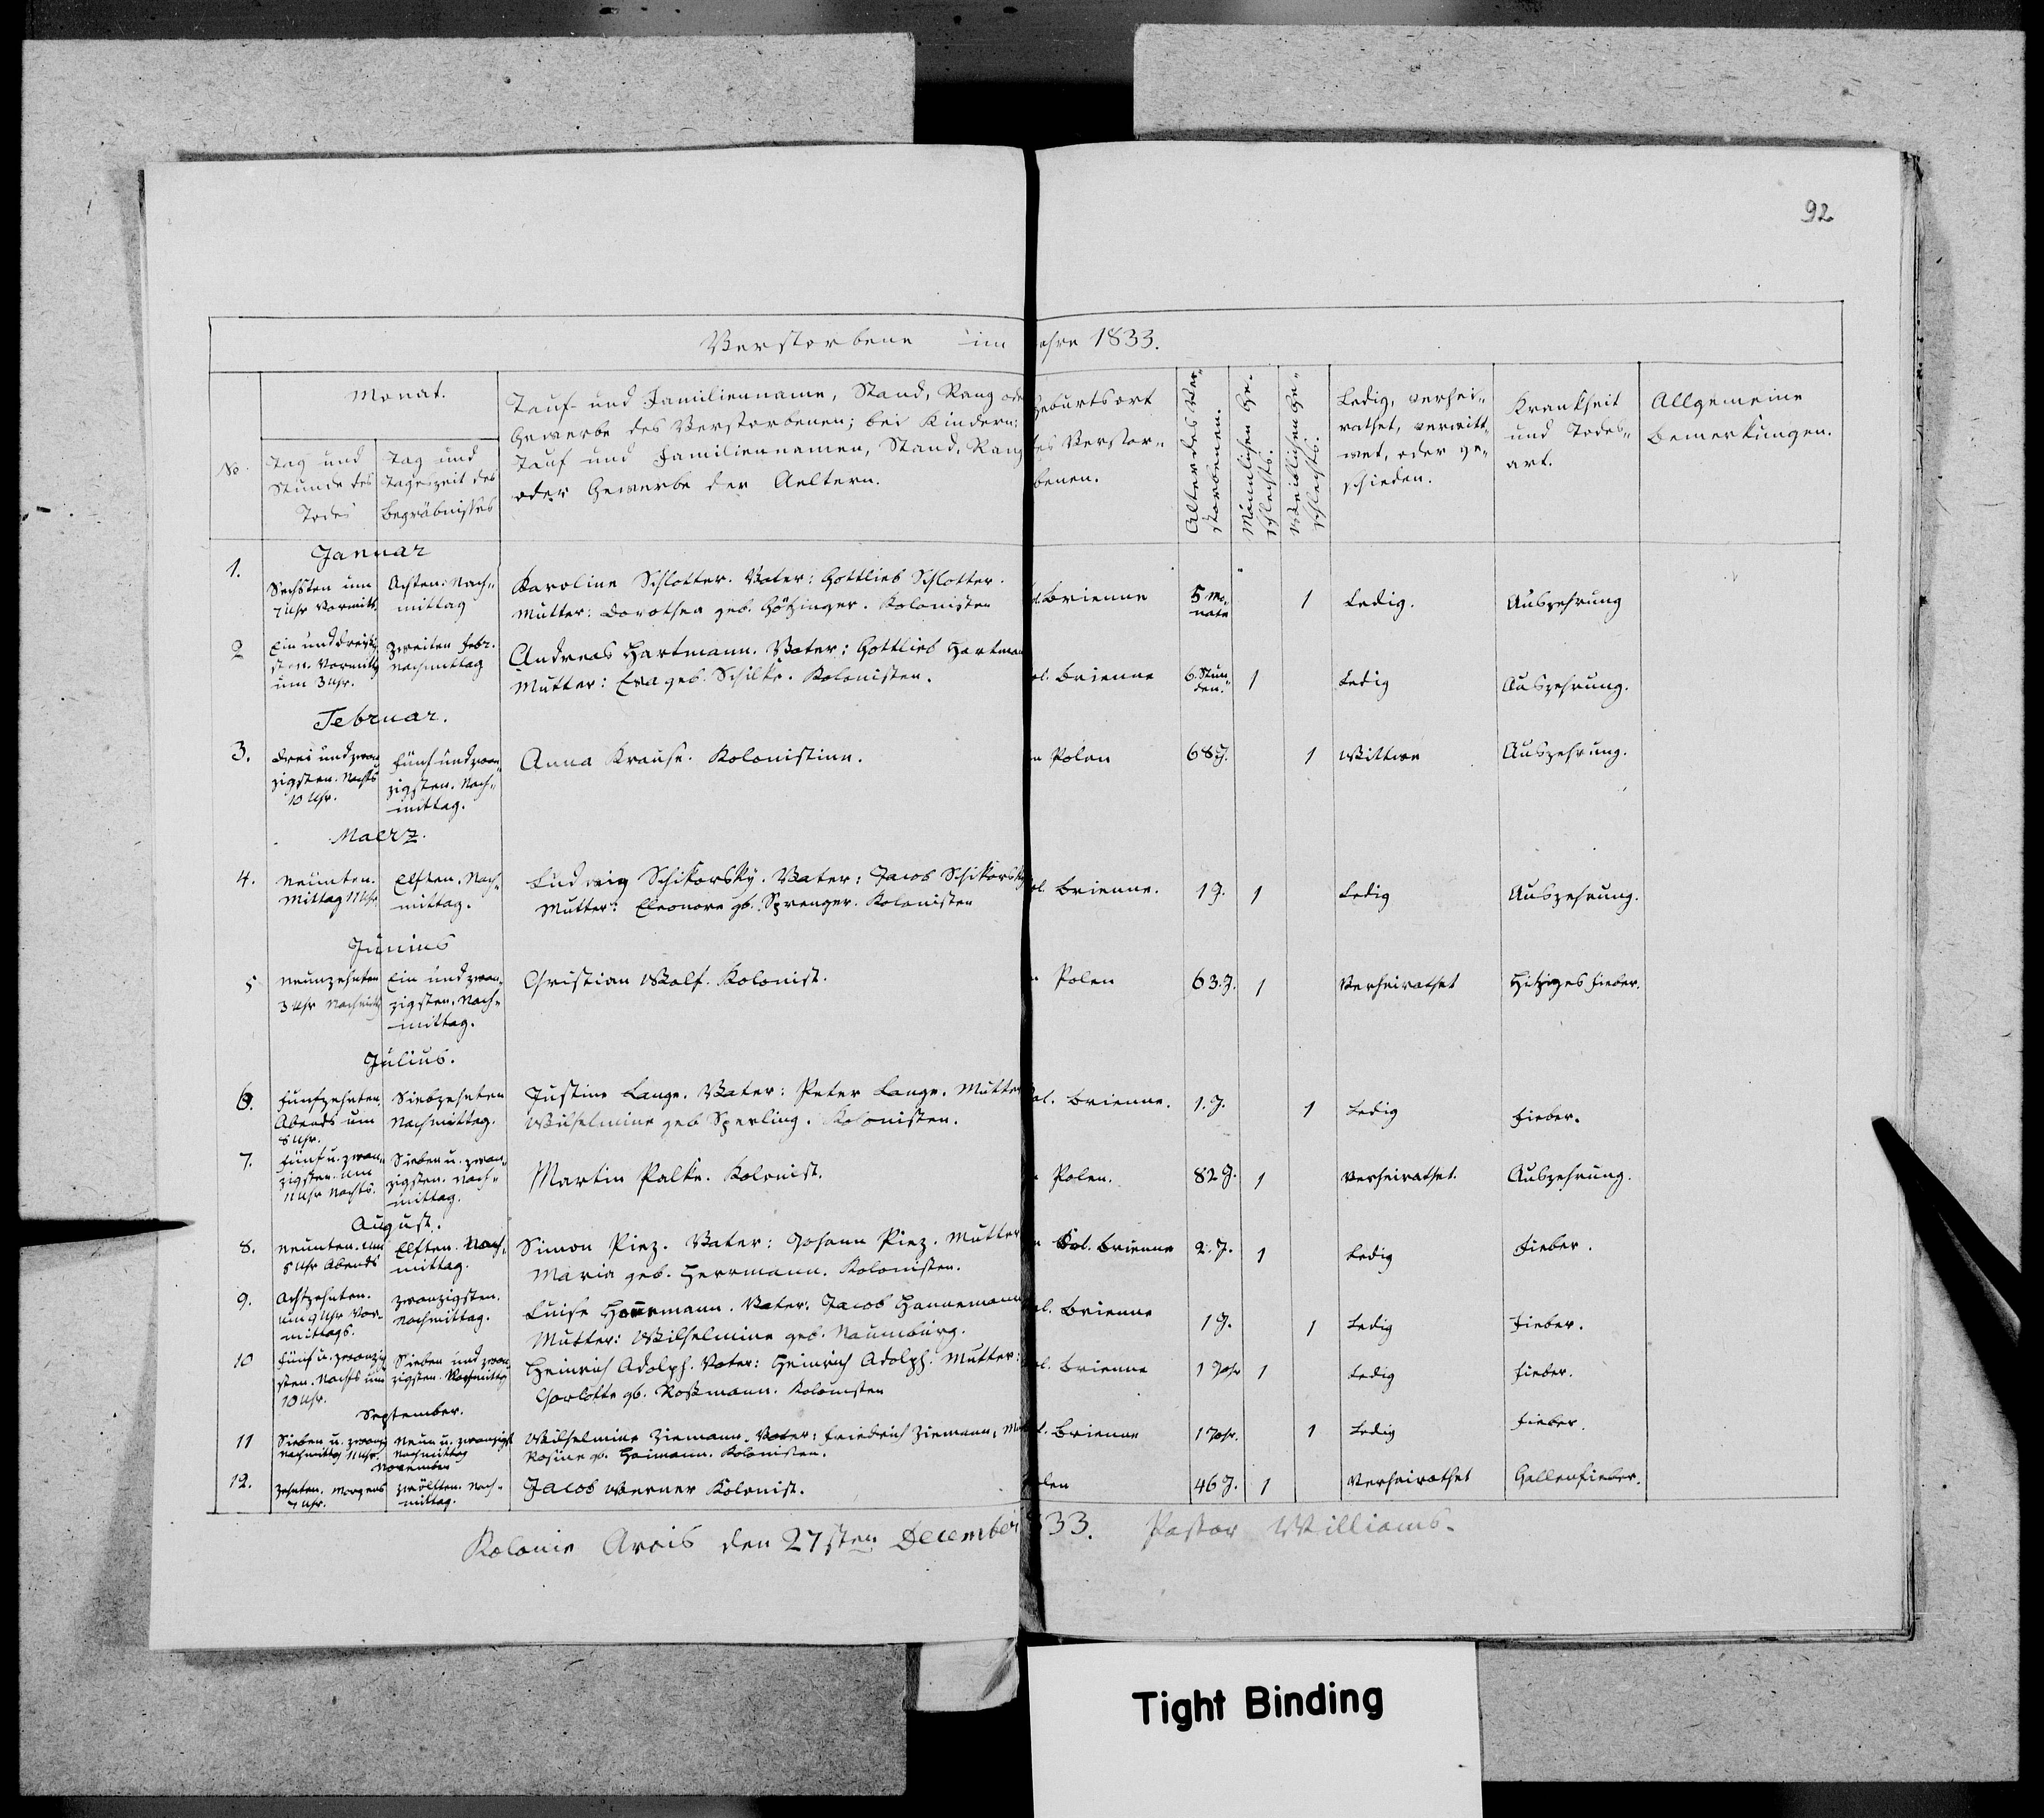 92
Verstorbene im ahre 1833.
No.
Monat.
Tag und
Stunde des
Todes
Tag und
Tageszeit des
Begräbnisses
Tauf- und Familienname, Stand, Rang ode
Gewerbe des Verstorbenen; bei Kindern:
Tauf und Familiennamen, Stand, Rang
oder Gewerbe der Aeltern.
Geburtsort
des Verstor-
benen.
Alter des Ver-
storbenen.
Männlichen Ge-
schlechts.
Weiblichen Ge-
schlechts.
Ledig, verhei-
rathet, verwitt-
wet, oder ge-
schieden.
Krankheit
und Todes-
art.
Allgemeine
Bemerkungen.
Januar
1.
Sechsten um
7 Uhr Vormitt.
Achten. Nach-
mittag
Karoline Schlotter. Vater: Gottlieb Schlotter.
Mutter: Dorothea geb. Götzinger. Kolonisten
l. Brienne
5 Mo-
nate
1
Ledig.
Auszehrung
2
Ein und dreißig-
sten. Vormittg
um 3 Uhr.
Zweiten Febr.
Nachmittag
Andreas Hartmann. Vater: Gottlieb Hartman
Mutter: Eva geb. Schilke. Kolonisten.
ol. Brienne
6. Stun-
den.
1
Ledig
Auszehrung.
Februar.
3.
Drei und zwan
zigsten. Nachts
10 Uhr.
Fünf und zwan-
zigsten. Nach-
mittag.
Anna Krause. Kolonistinn.
n Polen
68 J.
1
Wittwe
Auszehrung.
Maerz.
4.
Neunten.
Mittag 11 Uhr.
Elften. Nach-
mittag.
Ludwig Schikorsky. Vater: Jacob Schikorsky
Mutter: Eleonore gb. Sprenger. Kolonisten
ol. Brienne.
1 J.
1
Ledig
Auszehrung.
Junius
5
Neunzehnten
3 Uhr Nachmitt.
Ein und zwan-
zigsten. Nach-
mittag.
Christian Wolf. Kolonist.
Polen
63. J.
1
Verheirathet
Hitziges Fieber.
Julius.
6.
Fünfzehnten.
Abends um
8 Uhr.
Siebzehnten
Nachmittag.
Justine Lange. Vater: Peter Lange. Mutter
Wilhelmine geb Sperling. Kolonisten.
ol. Brienne.
1. J.
1
Ledig
Fieber.
7.
Fünf u. zwan-
zigsten. um
11 Uhr Nachts.
Sieben u. zwan-
zigsten. Nach-
mittag.
Martin Palke. Kolonist.
Polen.
82 J.
1
Verheirathet.
Auszehrung.
August.
8.
Neunten. um
5 Uhr Abends
Elften. Nach-
mittag.
Simon Piez. Vater: Johann Piez. Mutter
Maria geb. Herrmann. Kolonisten.
Kol. Brienne
2. J.
1
Ledig
Fieber.
9.
Achtzehnten.
um 9 Uhr Vor-
mittags.
Zwanzigsten.
Nachmittag.
Luise Hannemann. Vater: Jacob Hannemann
Mutter: Wilhelmine geb. Naumburg.
ol. Brienne
1 J.
1
Ledig
Fieber.
10
Fünf u. zwanzig
sten. Nachts um
10 Uhr.
Sieben und zwan
zigsten. Nachmittg
Heinrich Adolph. Vater: Heinrich Adolph. Mutter:
Charlotte gb. Roßmann. Kolonisten
ol. Brienne
1 Jahr
1
Ledig
Fieber.
September.
11
Sieben u. zwanzig
Nachmittag 1 Uhr.
Neun u. zwanzigst
Nachmittag
Wilhelmine Ziemann. Vater: Friedrich Ziemann, Mut
Rosine gb. Heimann. Kolonisten.
l. Brienne
1 Jahr.
1
Ledig
Fieber.
November
12.
Zehnten. Morgens
7 Uhr.
Zwölften. Nach-
mittag.
Jacob Werner Kolonist.
olen
46 J.
1
Verheirathet
Gallenfieber.
Kolonie Arcis den 27sten December 833. Pastor Williams.
Tight Binding